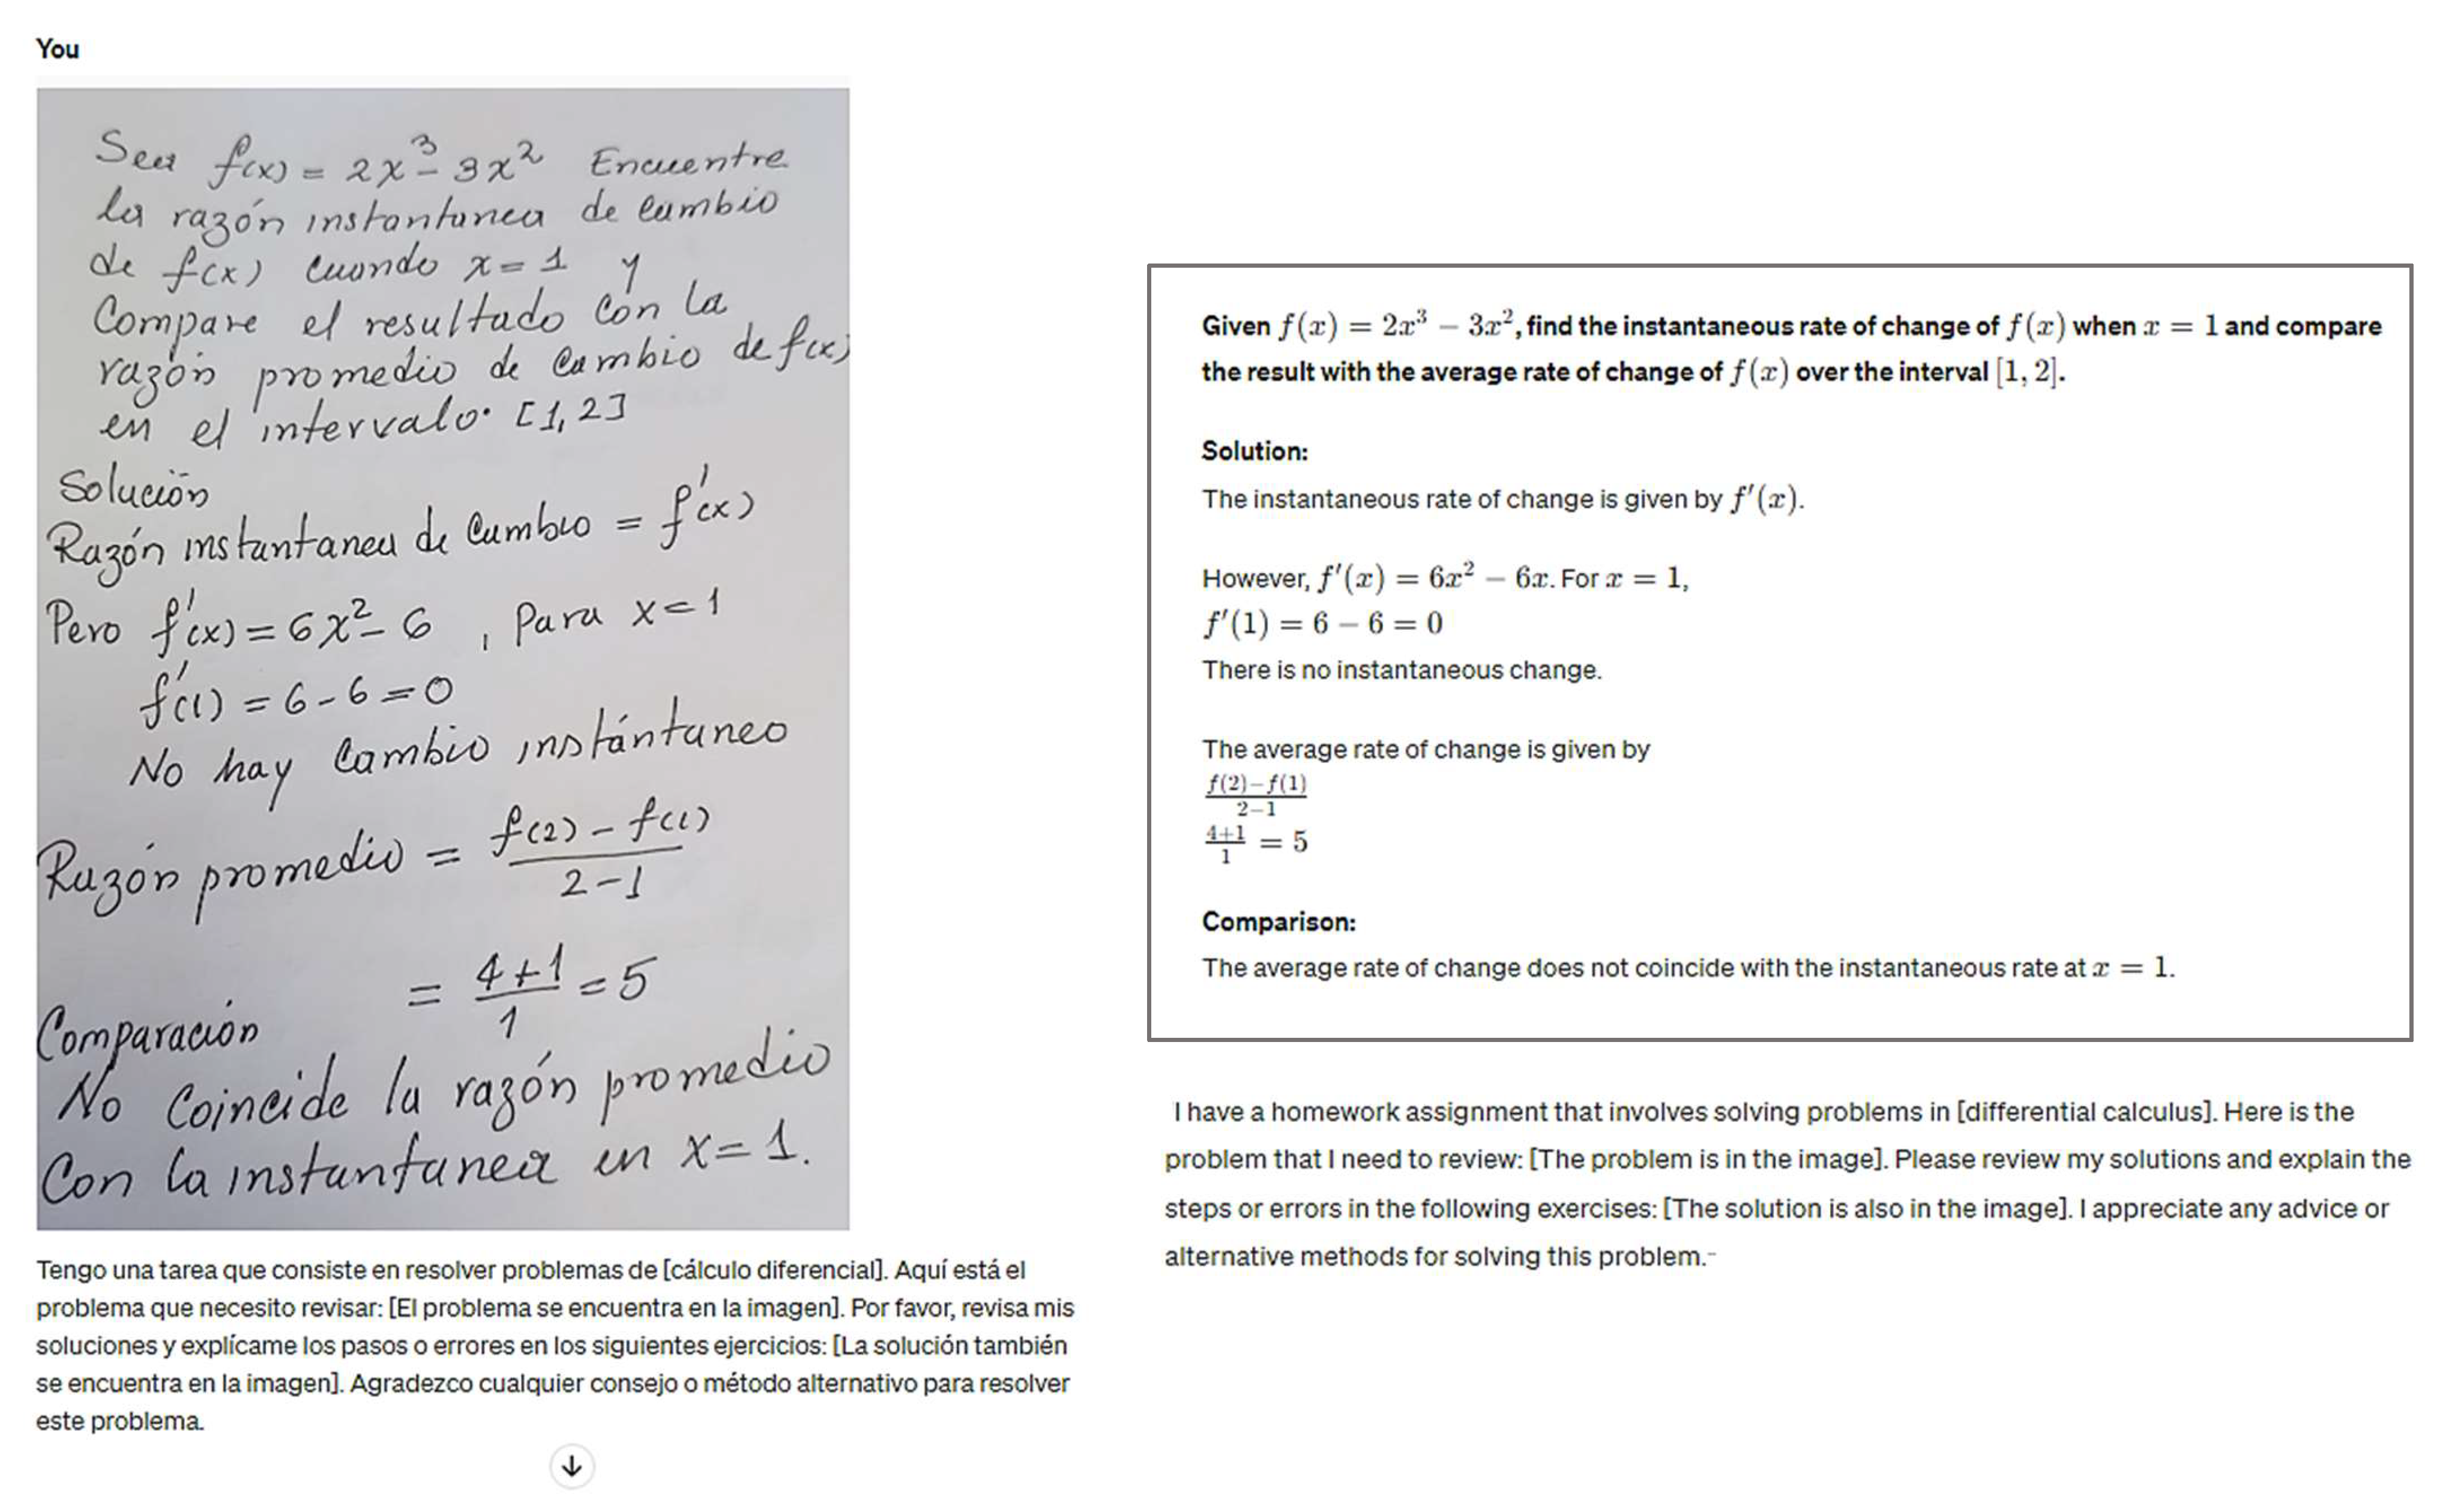 You
Sea f(x) = 2x³ - 3x² Encuentre
la razón instantanea de cambio
de f(x) cuando x = 1 y
Compare el resultado con la
razón promedio de cambio de f(x)
en el intervalo. [1, 2]
Solución
Razón instantanea de cambio = f'(x)
Pero f'(x) = 6x² - 6 , para x = 1
f'(1) = 6 - 6 = 0
No hay cambio instántaneo
Razón promedio = \frac{f(2) - f(1)}{2 - 1}
= \frac{4+1}{1} = 5
Comparación
No Coincide la razón promedio
Con la instantanea en x = 1.
Tengo una tarea que consiste en resolver problemas de [cálculo diferencial]. Aquí está el
problema que necesito revisar: [El problema se encuentra en la imagen]. Por favor, revisa mis
soluciones y explícame los pasos o errores en los siguientes ejercicios: [La solución también
se encuentra en la imagen]. Agradezco cualquier consejo o método alternativo para resolver
este problema.
Given f(x) = 2x³ − 3x², find the instantaneous rate of change of f(x) when x = 1 and compare
the result with the average rate of change of f(x) over the interval [1, 2].
Solution:
The instantaneous rate of change is given by f'(x).
However, f'(x) = 6x² − 6x. For x = 1,
f'(1) = 6 − 6 = 0
There is no instantaneous change.
The average rate of change is given by
\frac{f(2)−f(1)}{2−1}
\frac{4+1}{1} = 5
Comparison:
The average rate of change does not coincide with the instantaneous rate at x = 1.
I have a homework assignment that involves solving problems in [differential calculus]. Here is the
problem that I need to review: [The problem is in the image]. Please review my solutions and explain the
steps or errors in the following exercises: [The solution is also in the image]. I appreciate any advice or
alternative methods for solving this problem.-